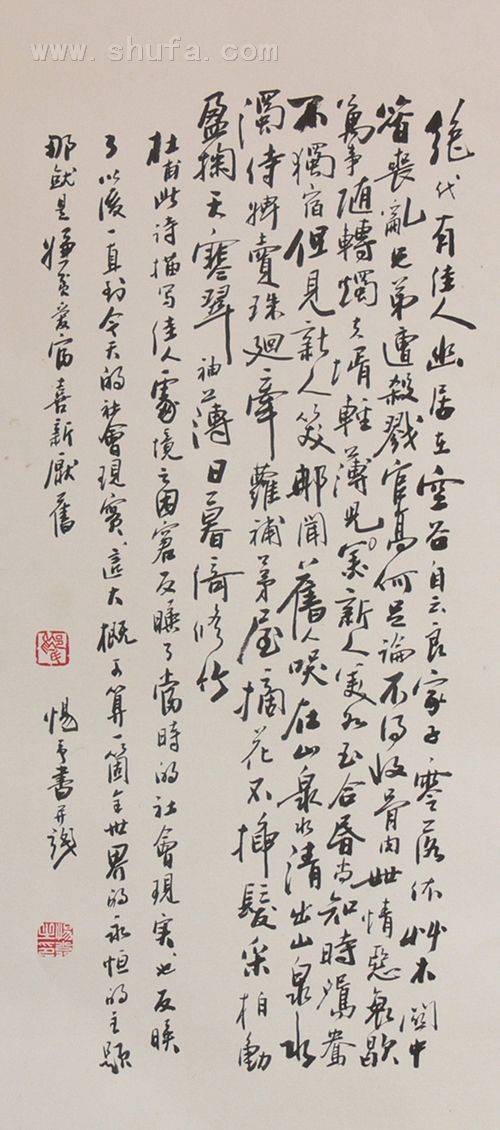 www.shufa.com
絶代有佳人幽居在空谷自云良家子零落依艸木關中
昔喪亂兄弟遭殺戮官高何足論不得收骨肉世情惡衰歇
萬事隨轉燭夫壻輕薄兒新人美如玉合昏尚知時鴛鴦
不獨宿但見新人笑那聞舊人哭在山泉水清出山泉水
濁侍婢賣珠廻牽蘿補茅屋摘花不插髮采柏動
盈掬天寒翠袖薄日暮倚修竹
杜甫此詩描写佳人處境之困窘反映了當時的社會現实也反映
了以後一直到今天的社會現實、這大概可算一箇全世界的永恒的主題
那就是嫌貧愛富喜新厭舊
惕書并識